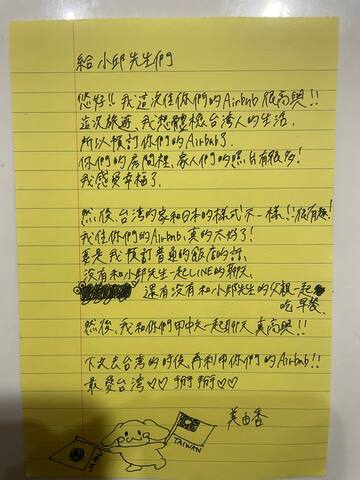 給小邱先生們
您好!! 我這次住你們的Airbnb很高興!!
這次旅遊、我想體檢台湾人的生活、
所以預訂你們的Airbnb了.
你們的房間裡、家人們的照片有很多!
我感受幸福了.
然後台湾的家和日本的樣式不一樣!!很有趣!
我住你們的Airbnb、真的太好了!
要是我預訂普通的飯店的話、
沒有和小邱先生一起LINE的聊天、
還有没有和小邱先生的父親一起
吃早餐.
然後、我和你們用中文一起聊天真高興!!
下次去台湾的時侯、再利用你們的Airbnb!!
最愛台湾♡♡ 掰掰♡♡
美由香
JAPAN
TAIWAN